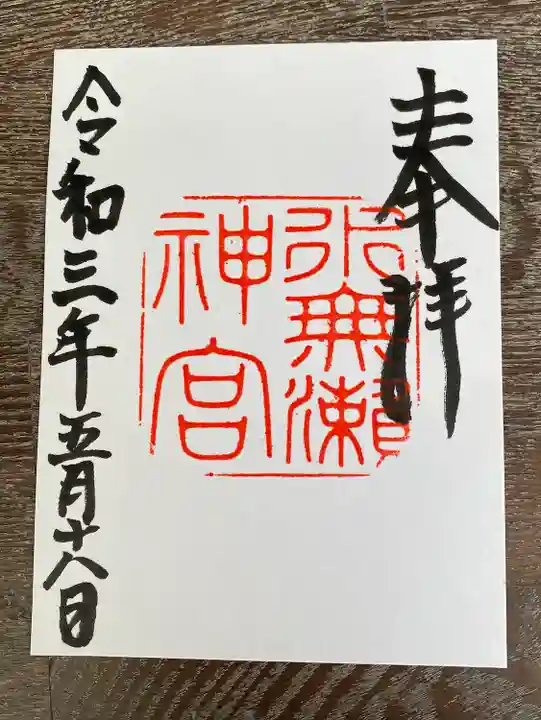 奉拝
水無瀬
神宮
令和三年五月十八日